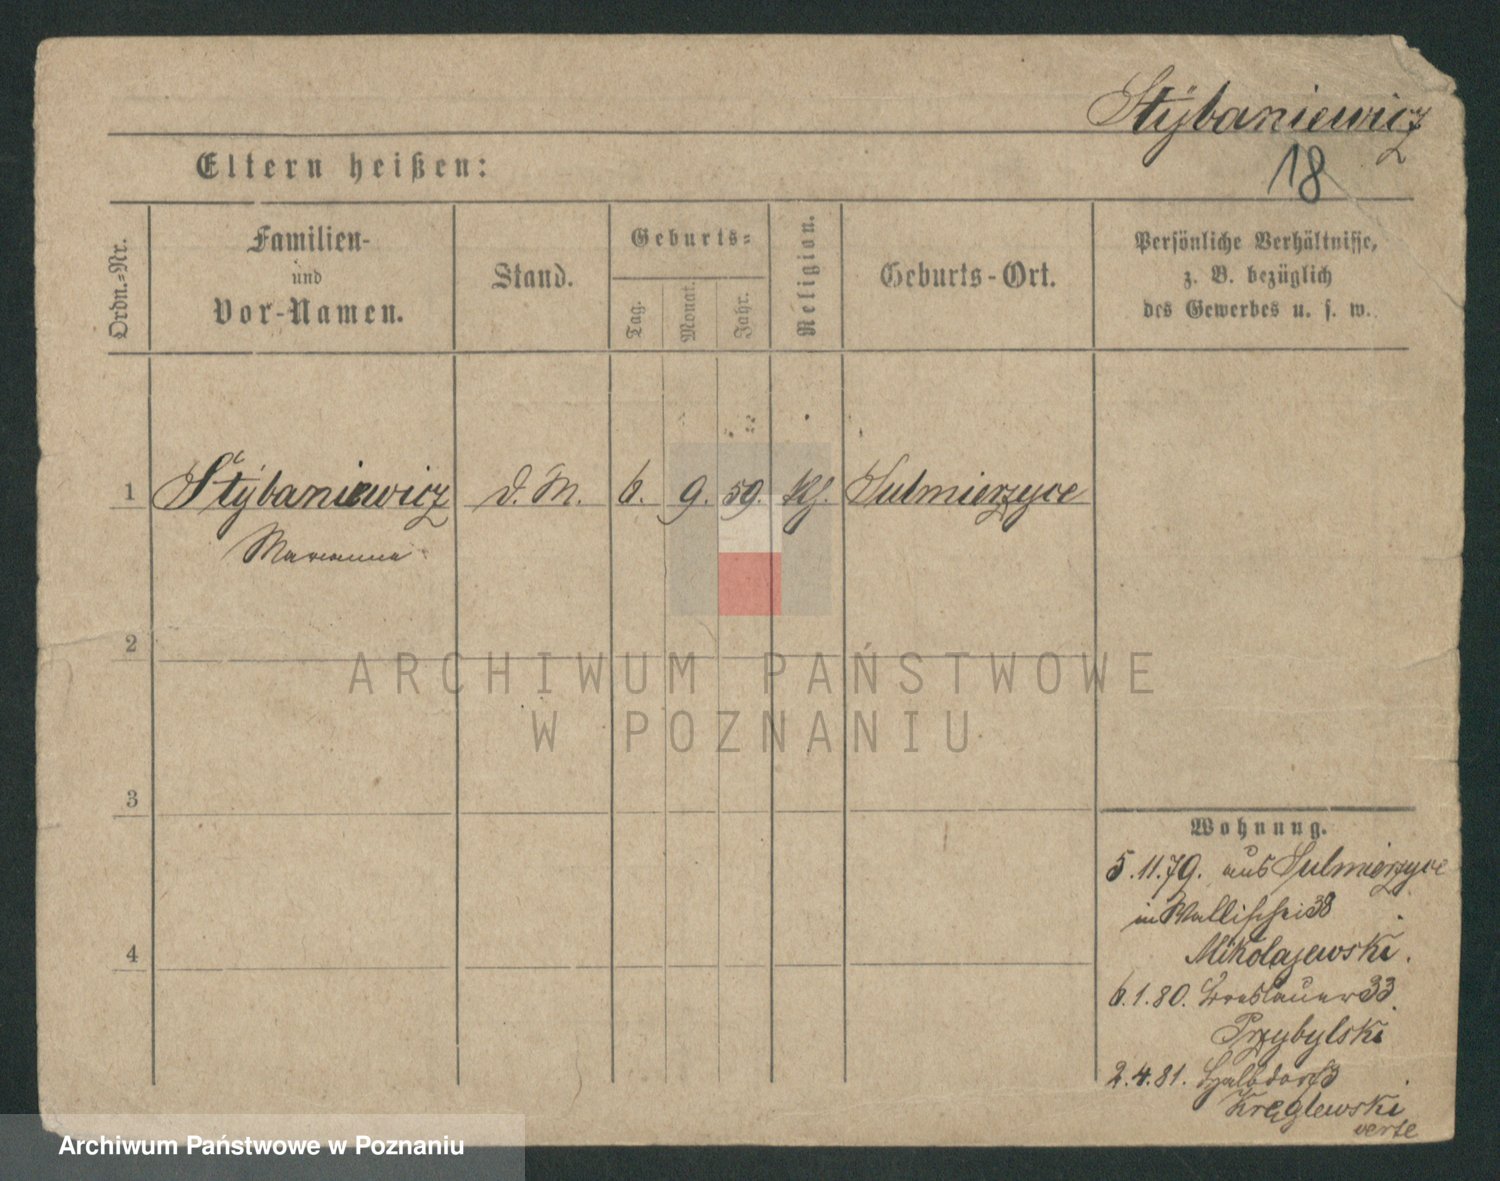 Stÿbaniewicz
18
Eltern heißen:
Ordn.-Nr.
Familien-
und
Vor-Namen.
Stand.
Geburts-
Tag.
Monat.
Jahr.
Religion.
Geburts-Ort.
Persönliche Verhältnisse,
z. B. bezüglich
des Gewerbes u. s. w.
1 Stÿbaniewicz d. M. 6. 9. 59. kth. Sulmierzyce
Marianna
2
3
4
Wohnung.
5.11.79. aus Sulmierzyce
in Wallischei 38
Mikolajewski.
6.1.80. Breslauer 33
Przybylski
2.4.81. Halbdorf 3
Kręglewski
verte
ARCHIWUM PAŃSTWOWE
W POZNANIU
Archiwum Państwowe w Poznaniu